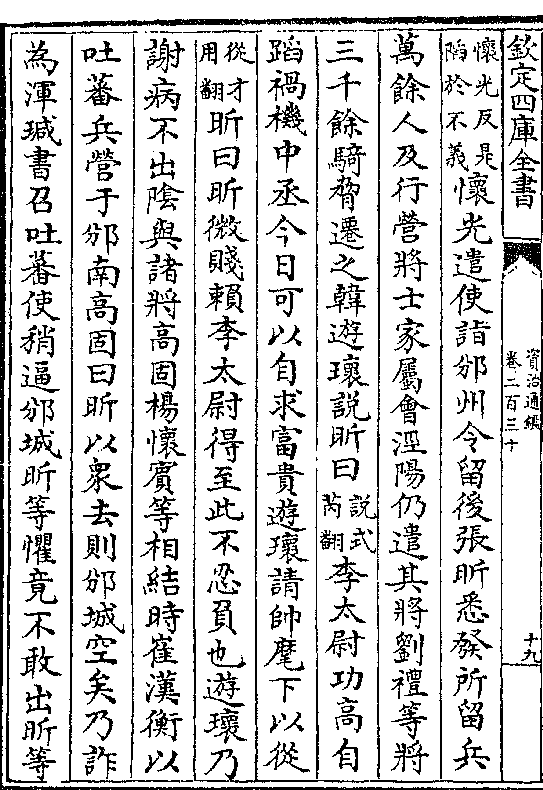 欽定四庫全書
資治通鑑
卷二百三十
十九
懷光反是陷於不義懷光遣使詣邠州令留後張昕悉發所留兵
萬餘人及行營將士家屬會涇陽仍遣其將劉禮等將
三千餘騎脅遷之韓遊瓌説昕曰説式芮翻李太尉功高自
蹈禍機中丞今日可以自求富貴遊瓌請帥麾下以從
從才用翻昕曰昕微賤賴李太尉得至此不忍負也遊瓌乃
謝病不出陰與諸將高固楊懷賓等相結時崔漢衡以
吐蕃兵營于邠南高固曰昕以衆去則邠城空矣乃詐
為渾瑊書召吐蕃使稍逼邠城昕等懼竟不敢出昕等